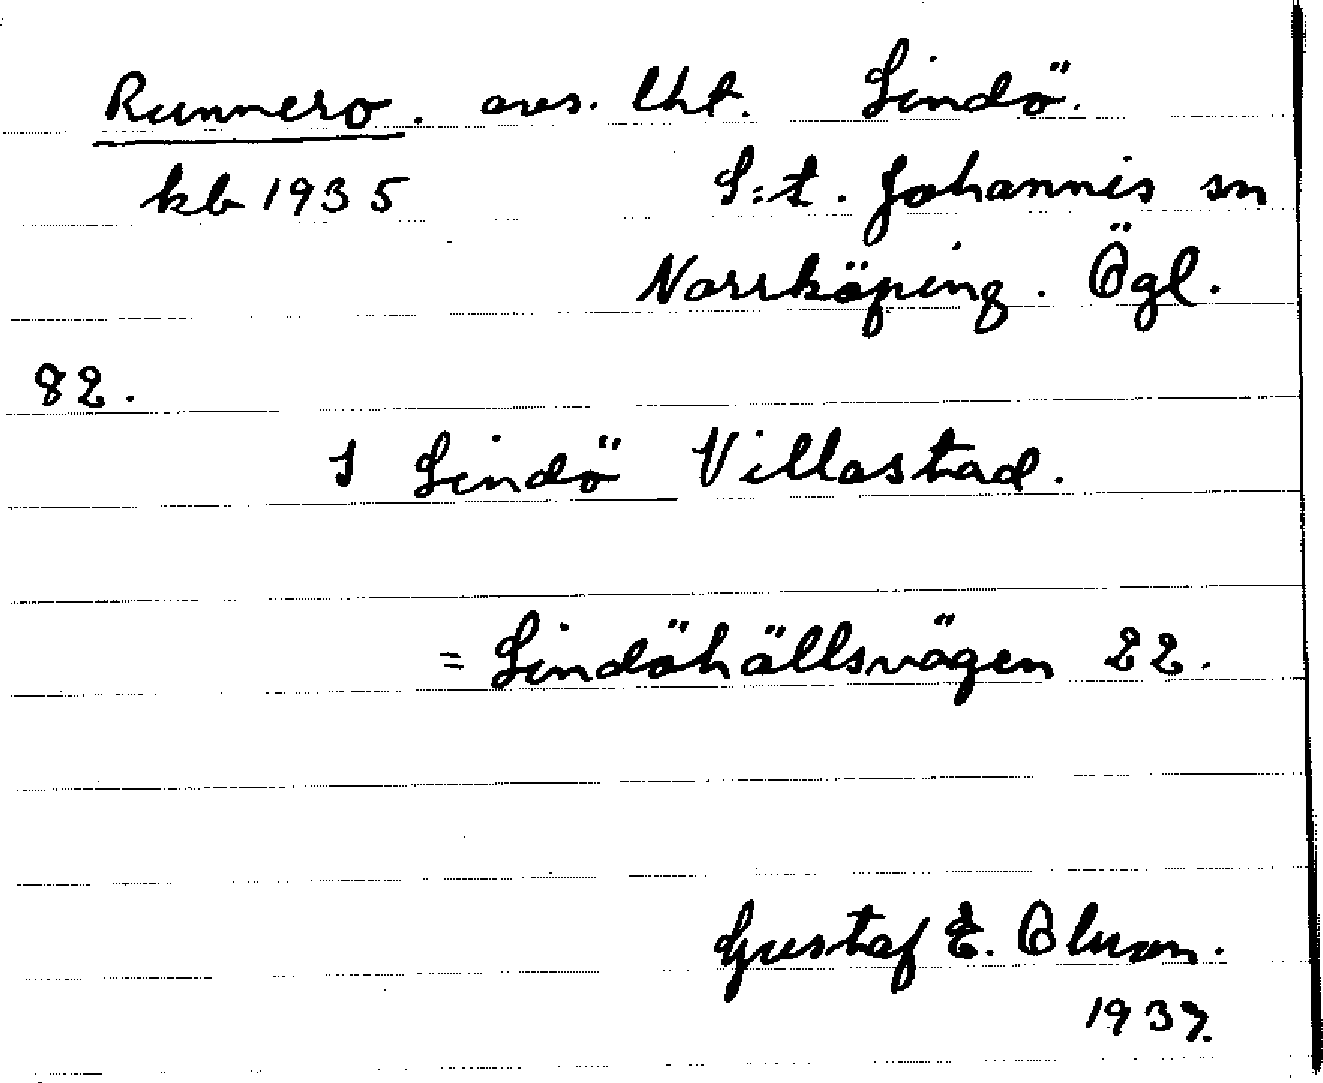 Runnero. avs. lht. Lindö.
kb 1935 S:t. Johannis sn
Norrköping. Ögl.
82.
I Lindö Villastad.
= Lindöhällsvägen 22.
Gustaf E. Olsson.
1937.